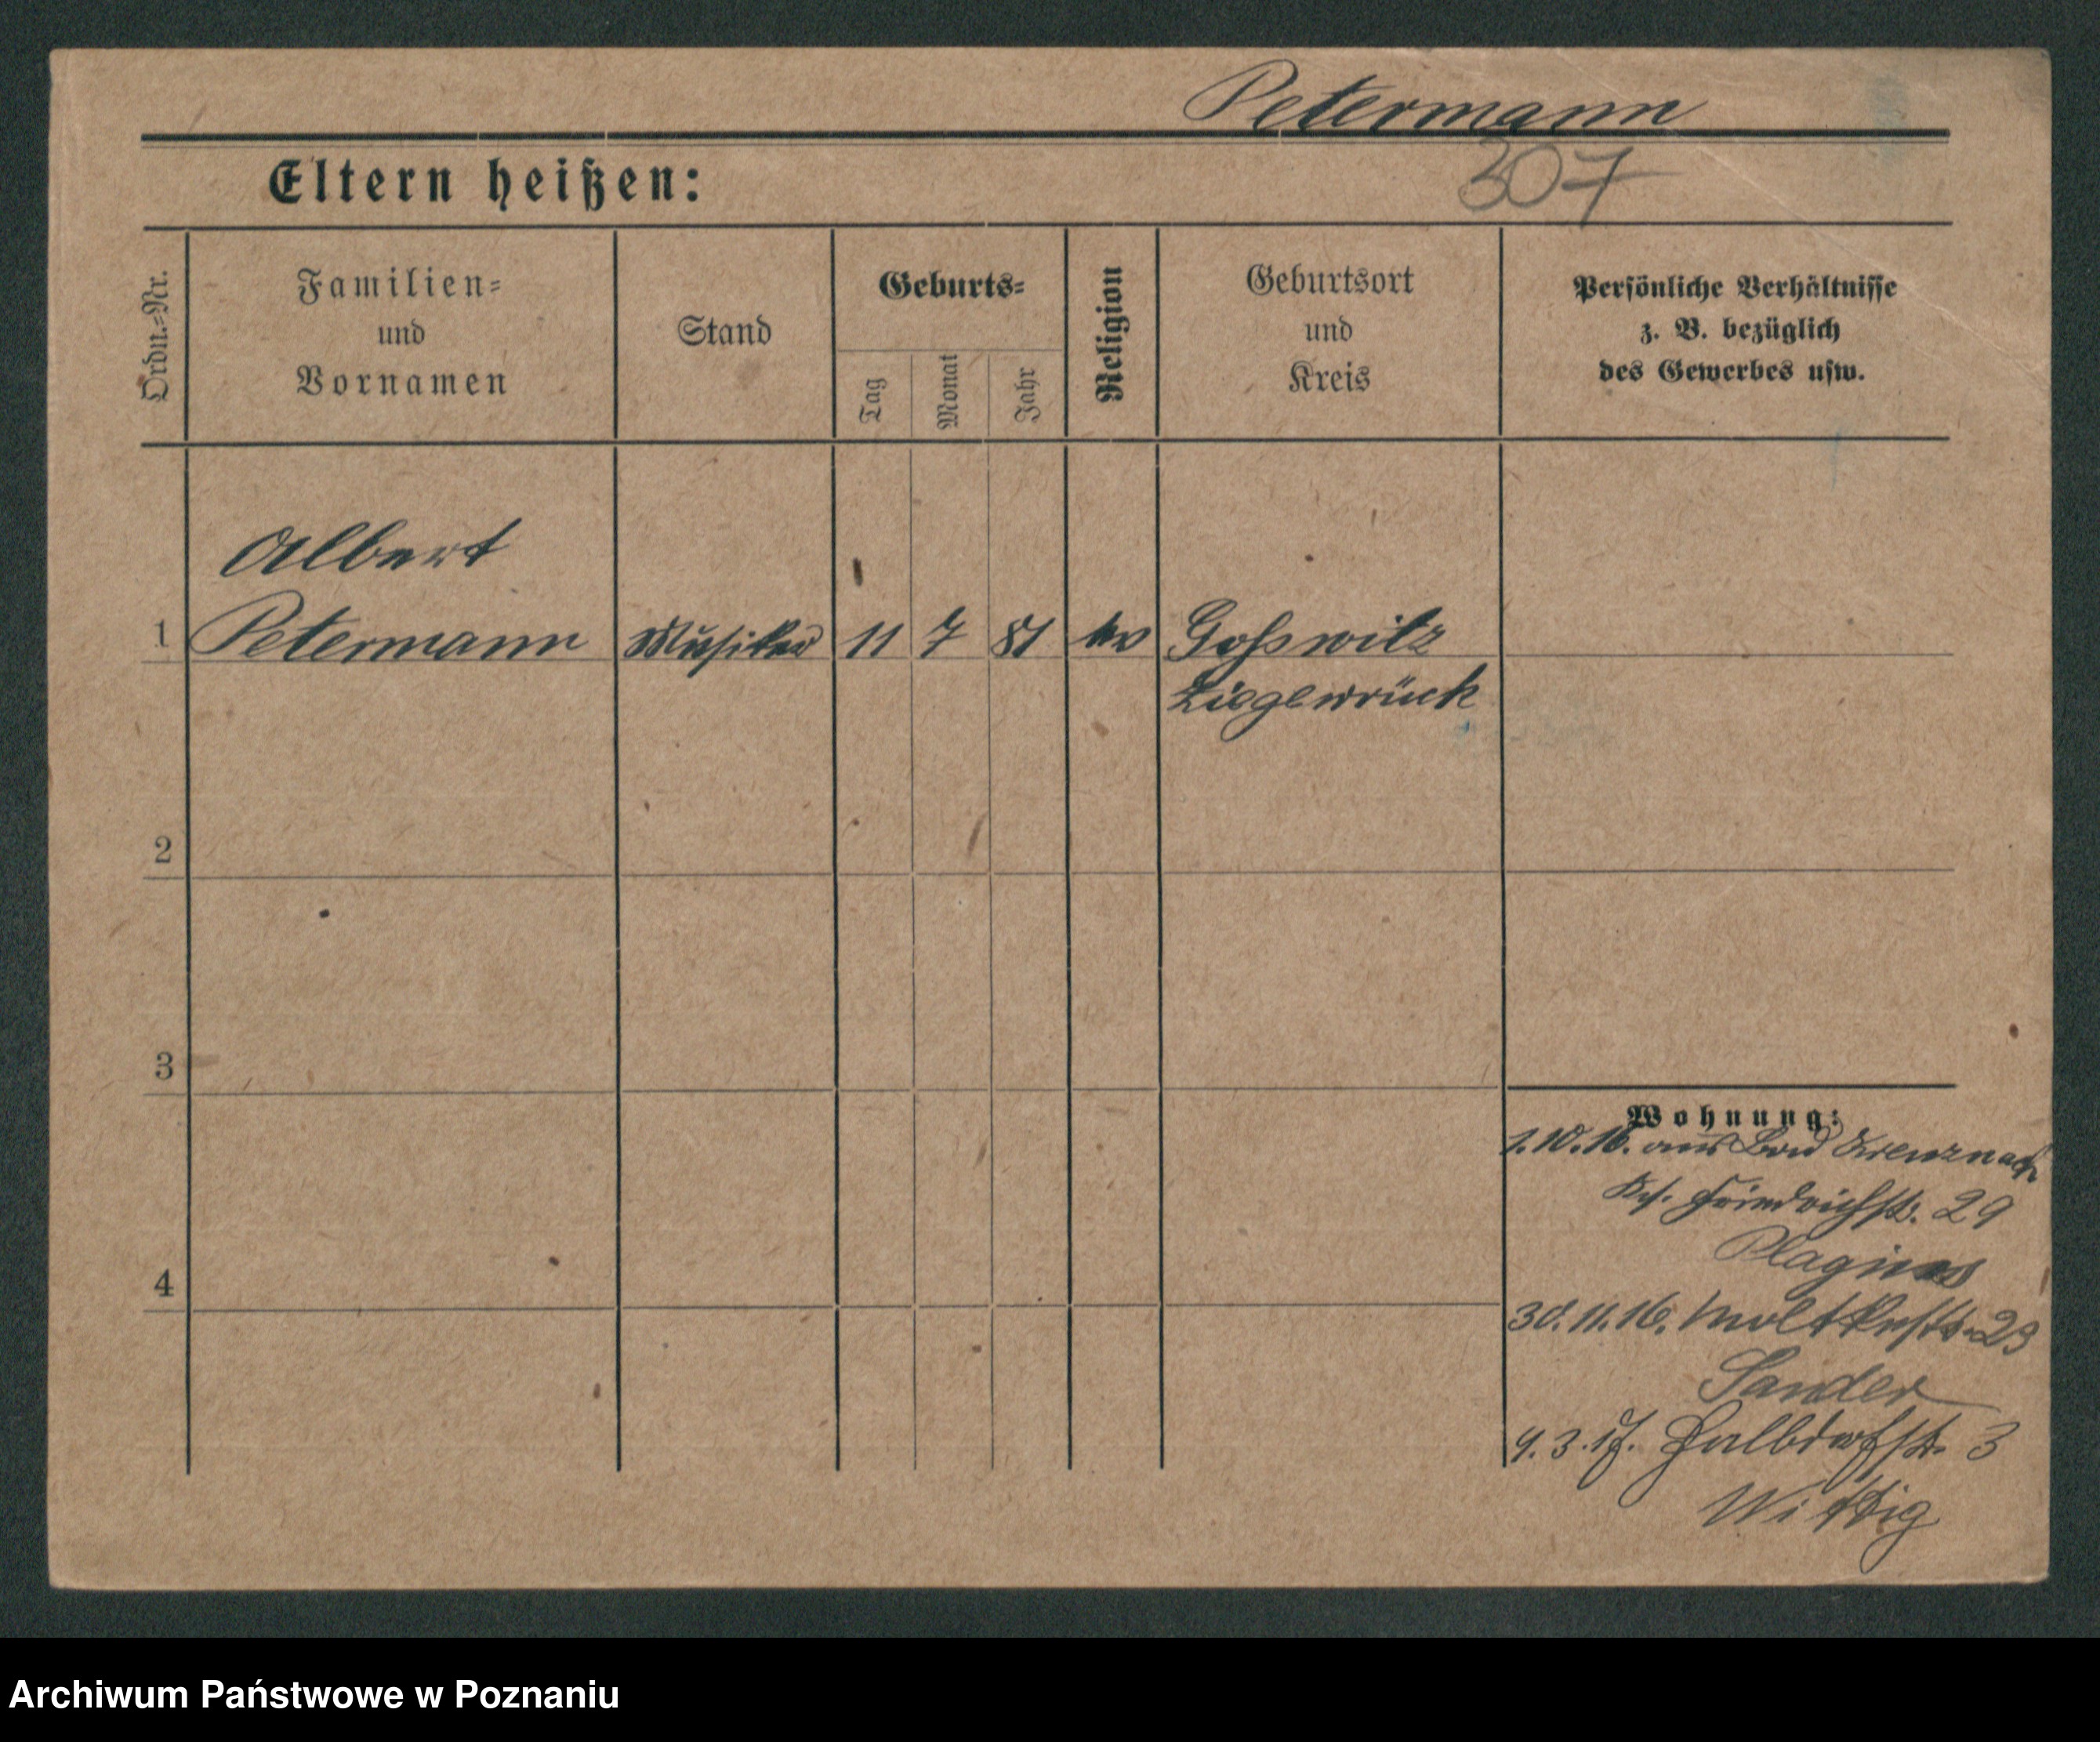 Petermann
307
Eltern heißen:
Ordn.-Nr.
Familien-
und
Vornamen
Stand
Geburts-
Tag
Monat
Jahr
Religion
Geburtsort
und
Kreis
Persönliche Verhältnisse
z. B. bezüglich
des Gewerbes usw.
Albert
1 Petermann Musiker 11 7 81 ev Goßwitz
Ziegenrück
2
3
4
Wohnung:
1.10.16. aus Bad Kreuznach
Friedrichstr. 29
30.11.16. Moltkestr. 23
Sander
9.3.17. Halbdorfstr. 3
Wittig
Archiwum Państwowe w Poznaniu